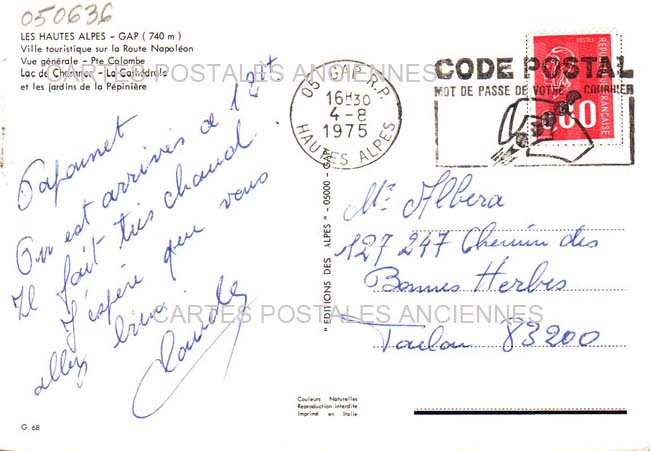 050636
LES HAUTES ALPES - GAP (740 m)
Ville touristique sur la Route Napoléon
Vue générale - Pte Colombe
Lac de Charance - La Cathédrale
et les jardins de la Pépinière
CARTES POSTALES ANCIENNES
05 GAP R.P.
16H30
4-8
1975
HAUTES ALPES
CODE POSTAL
MOT DE PASSE DE VOTRE COURRIER
POSTES
REPUBLIQUE FRANCAISE
On est arrivés le 1 août
Il fait très chaud
J'espère que vous
allez bien
Claude
"EDITIONS DES ALPES" - 05000 - GAP
Mr Albera
127 247 Chemin des
Bonnes Herbes
Toulon 83200
CARTES POSTALES ANCIENNES
Couleurs Naturelles
Reproduction interdite
Imprimé en Italie
G 68